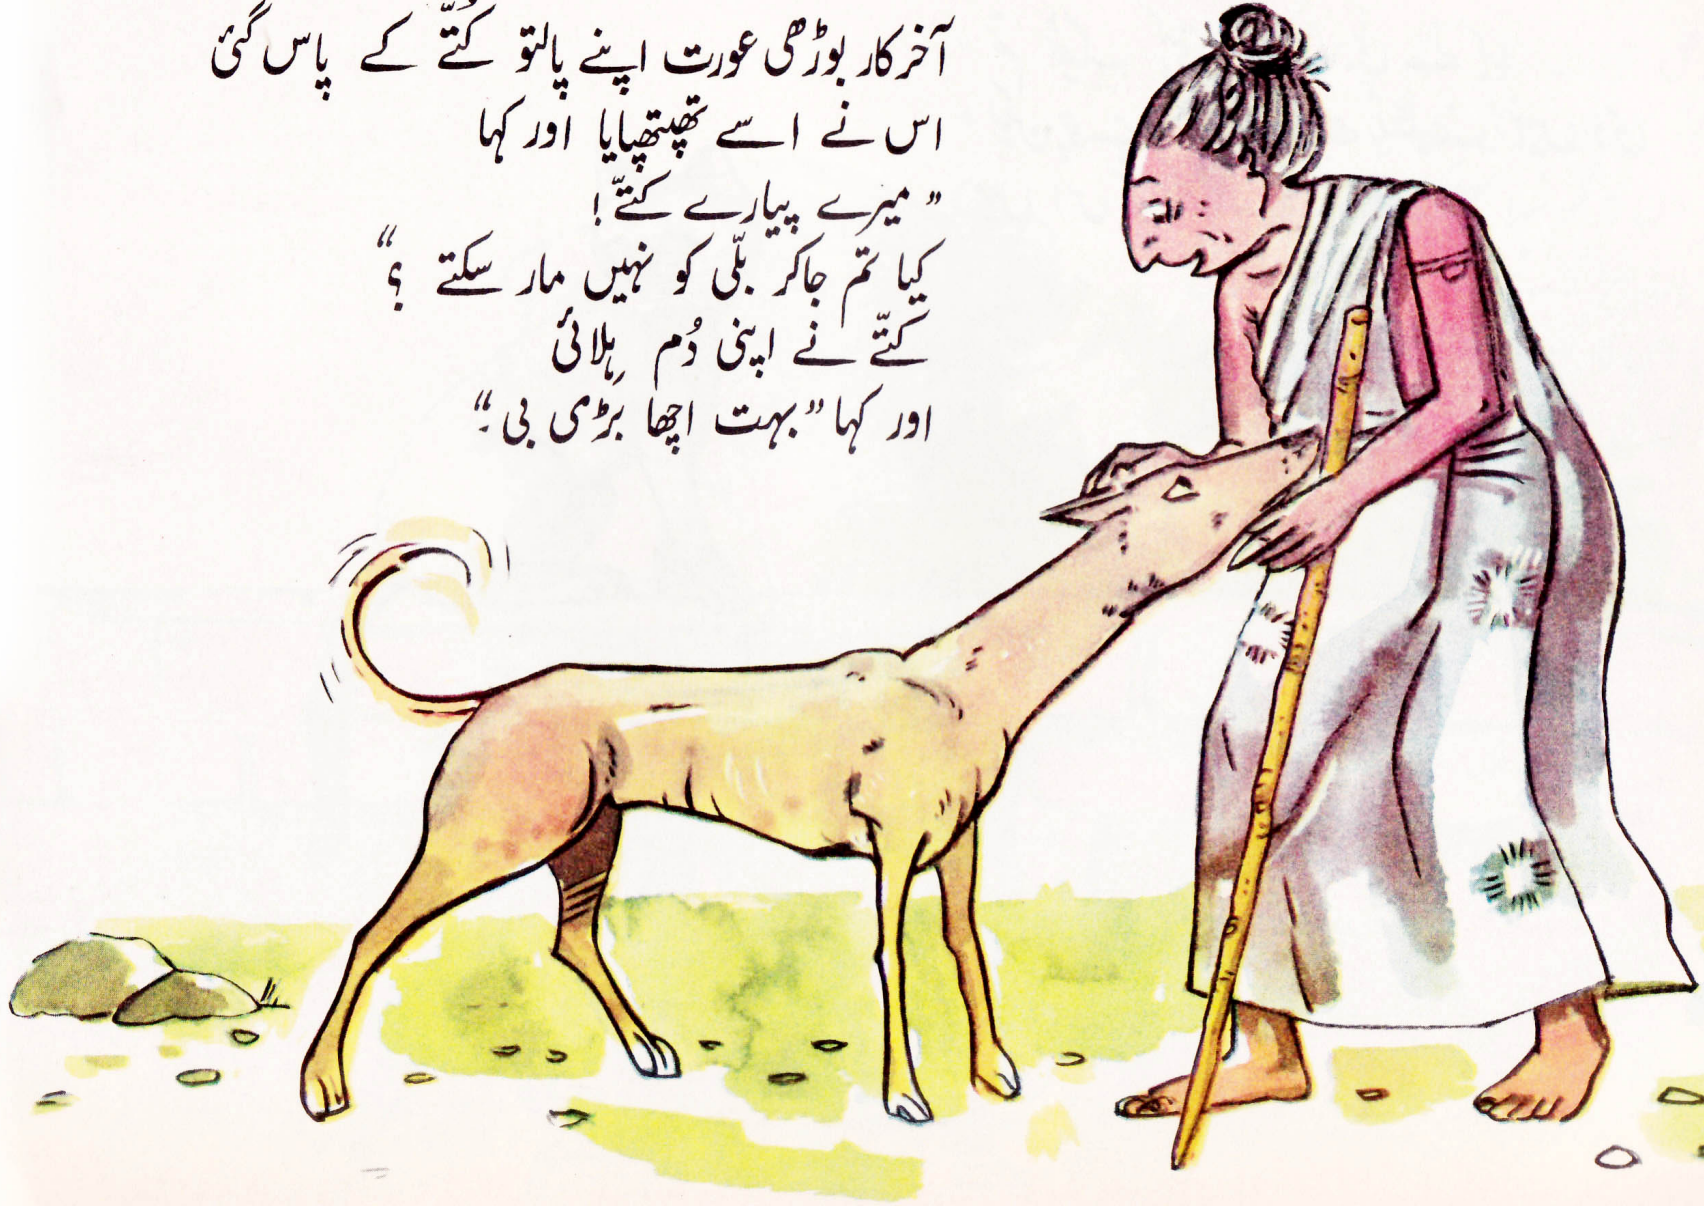 آخر کار بوڑھی عورت اپنے پالتو کُتّے کے پاس گئی
اس نے اسے تھپتھپایا اور کہا
”میرے پیارے کتّے!
کیا تم جاکر بلّی کو نہیں مار سکتے ؟“
کتّے نے اپنی دُم ہِلائی
اور کہا ”بہت اچھا بڑی بی۔“